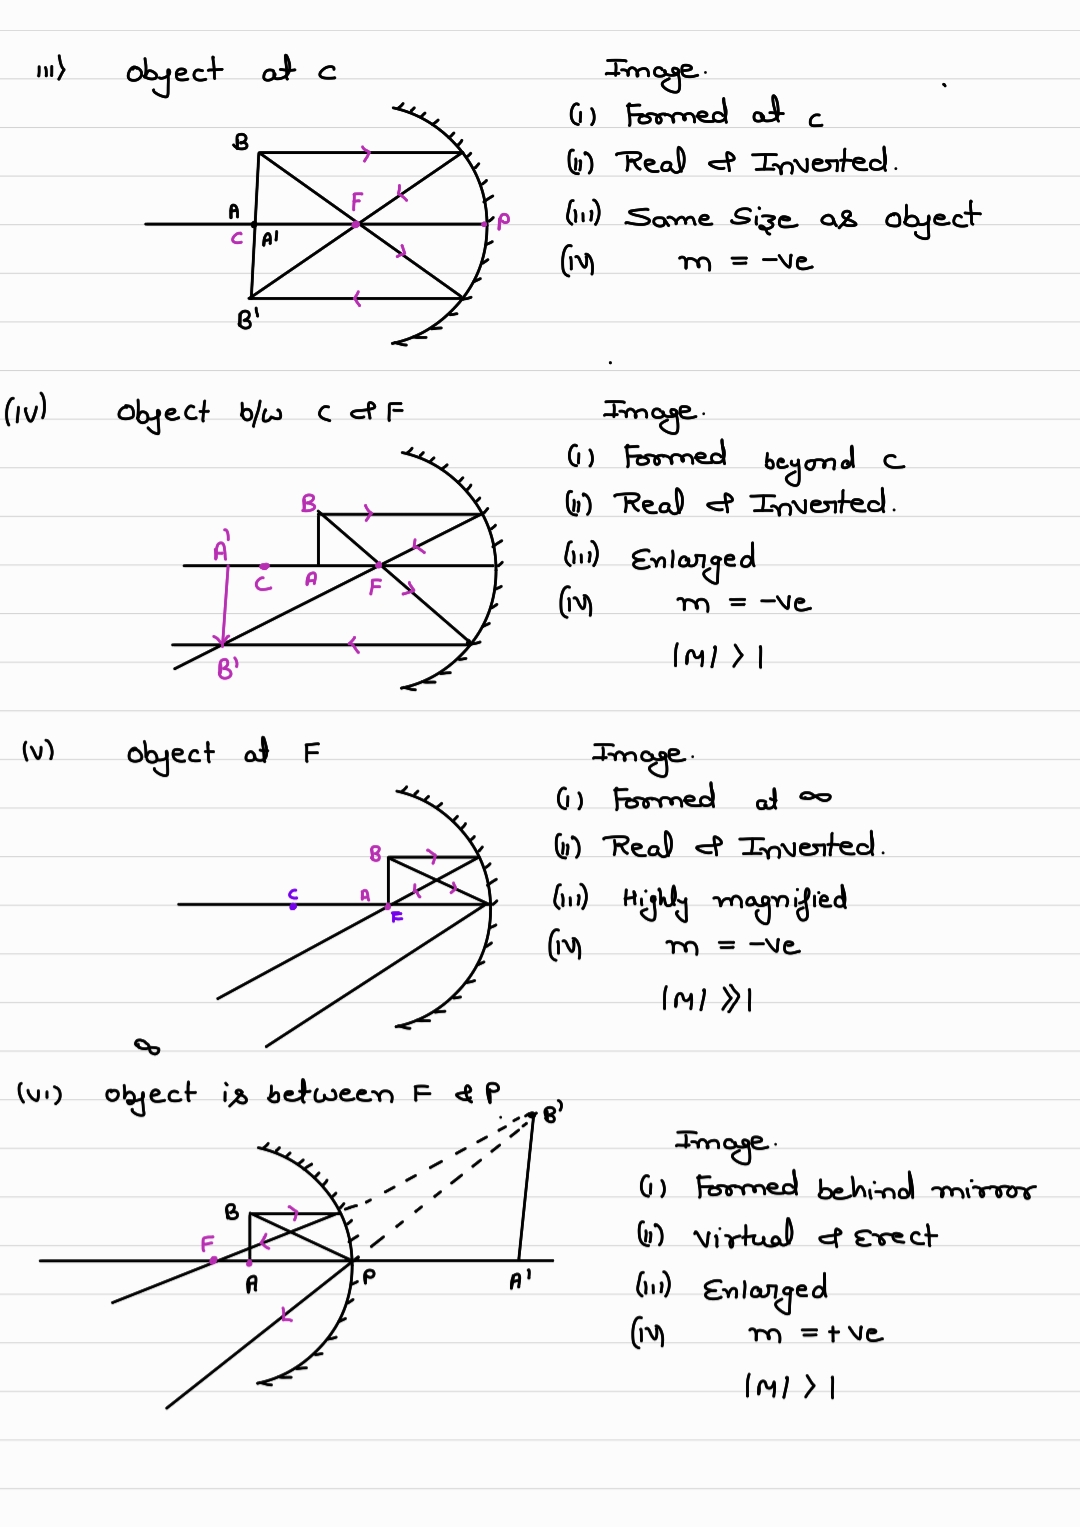 iii) object at c
Image.
(i) Formed at c
(ii) Real & Inverted.
(iii) Same Size as object
(iv) m = -ve
B
F
A
P
C A'
B'
(iv) Object b/w C & F
Image.
(i) Formed beyond C
(ii) Real & Inverted.
(iii) Enlarged
(iv) m = -ve
|M| > 1
B
A'
C A F
B'
(v) object at F
Image.
(i) Formed at ∞
(ii) Real & Inverted.
(iii) Highly magnified
(iv) m = -ve
|M| >> 1
B
C A
F
∞
(vi) object is between F & P
B'
Image.
(i) Formed behind mirror
(ii) Virtual & Erect
(iii) Enlarged
(iv) m = +ve
|M| > 1
B
F
A P A'